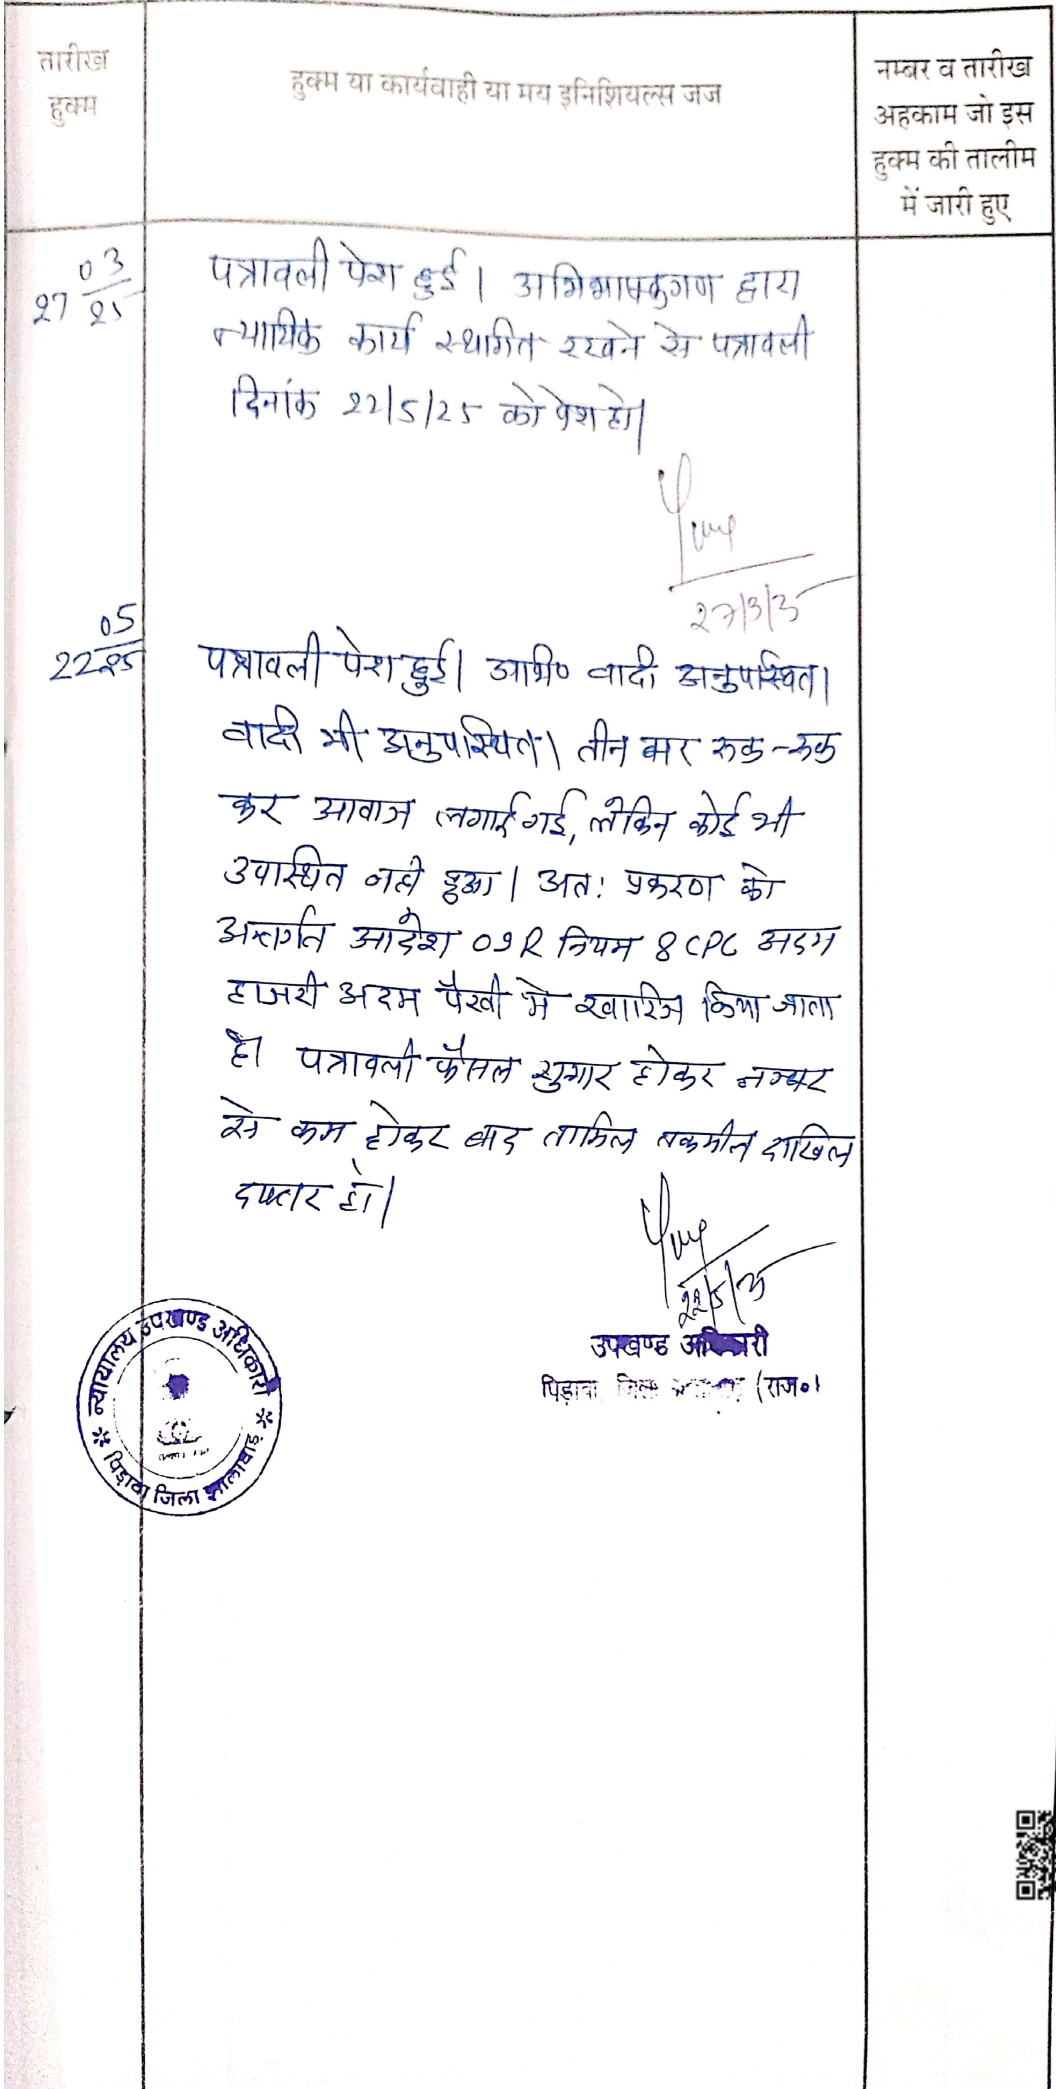 तारीख
हुक्म
हुक्म या कार्यवाही या मय इनिशियल्स जज
नम्बर व तारीख
अहकाम जो इस
हुक्म की तालीम
में जारी हुए
27 03/25
पत्रावली पेश हुई। अभिभाषकगण द्वारा
न्यायिक कार्य स्थगित रखने से पत्रावली
दिनांक 22/5/25 को पेश हो।
27/3/25
22 05/25
पत्रावली पेश हुई। अभि० वादी अनुपस्थित।
वादी भी अनुपस्थित। तीन बार रुक-रुक
कर आवाज लगाई गई, लेकिन कोई भी
उपस्थित नही हुआ। अतः प्रकरण को
अन्तर्गत आदेश 09 R नियम 8 CPC अदम
हाजरी अदम पैरवी मे खारिज किया जाता
है। पत्रावली फैसल शुमार होकर नम्बर
से कम होकर बाद तामिल तकमील दाखिल
दफ्तर हो।
22/5/25
उपखण्ड अधिकारी
पिड़ावा जिला (राज०)
न्यायालय उपखण्ड अधिकारी
पिड़ावा जिला झालावाड़